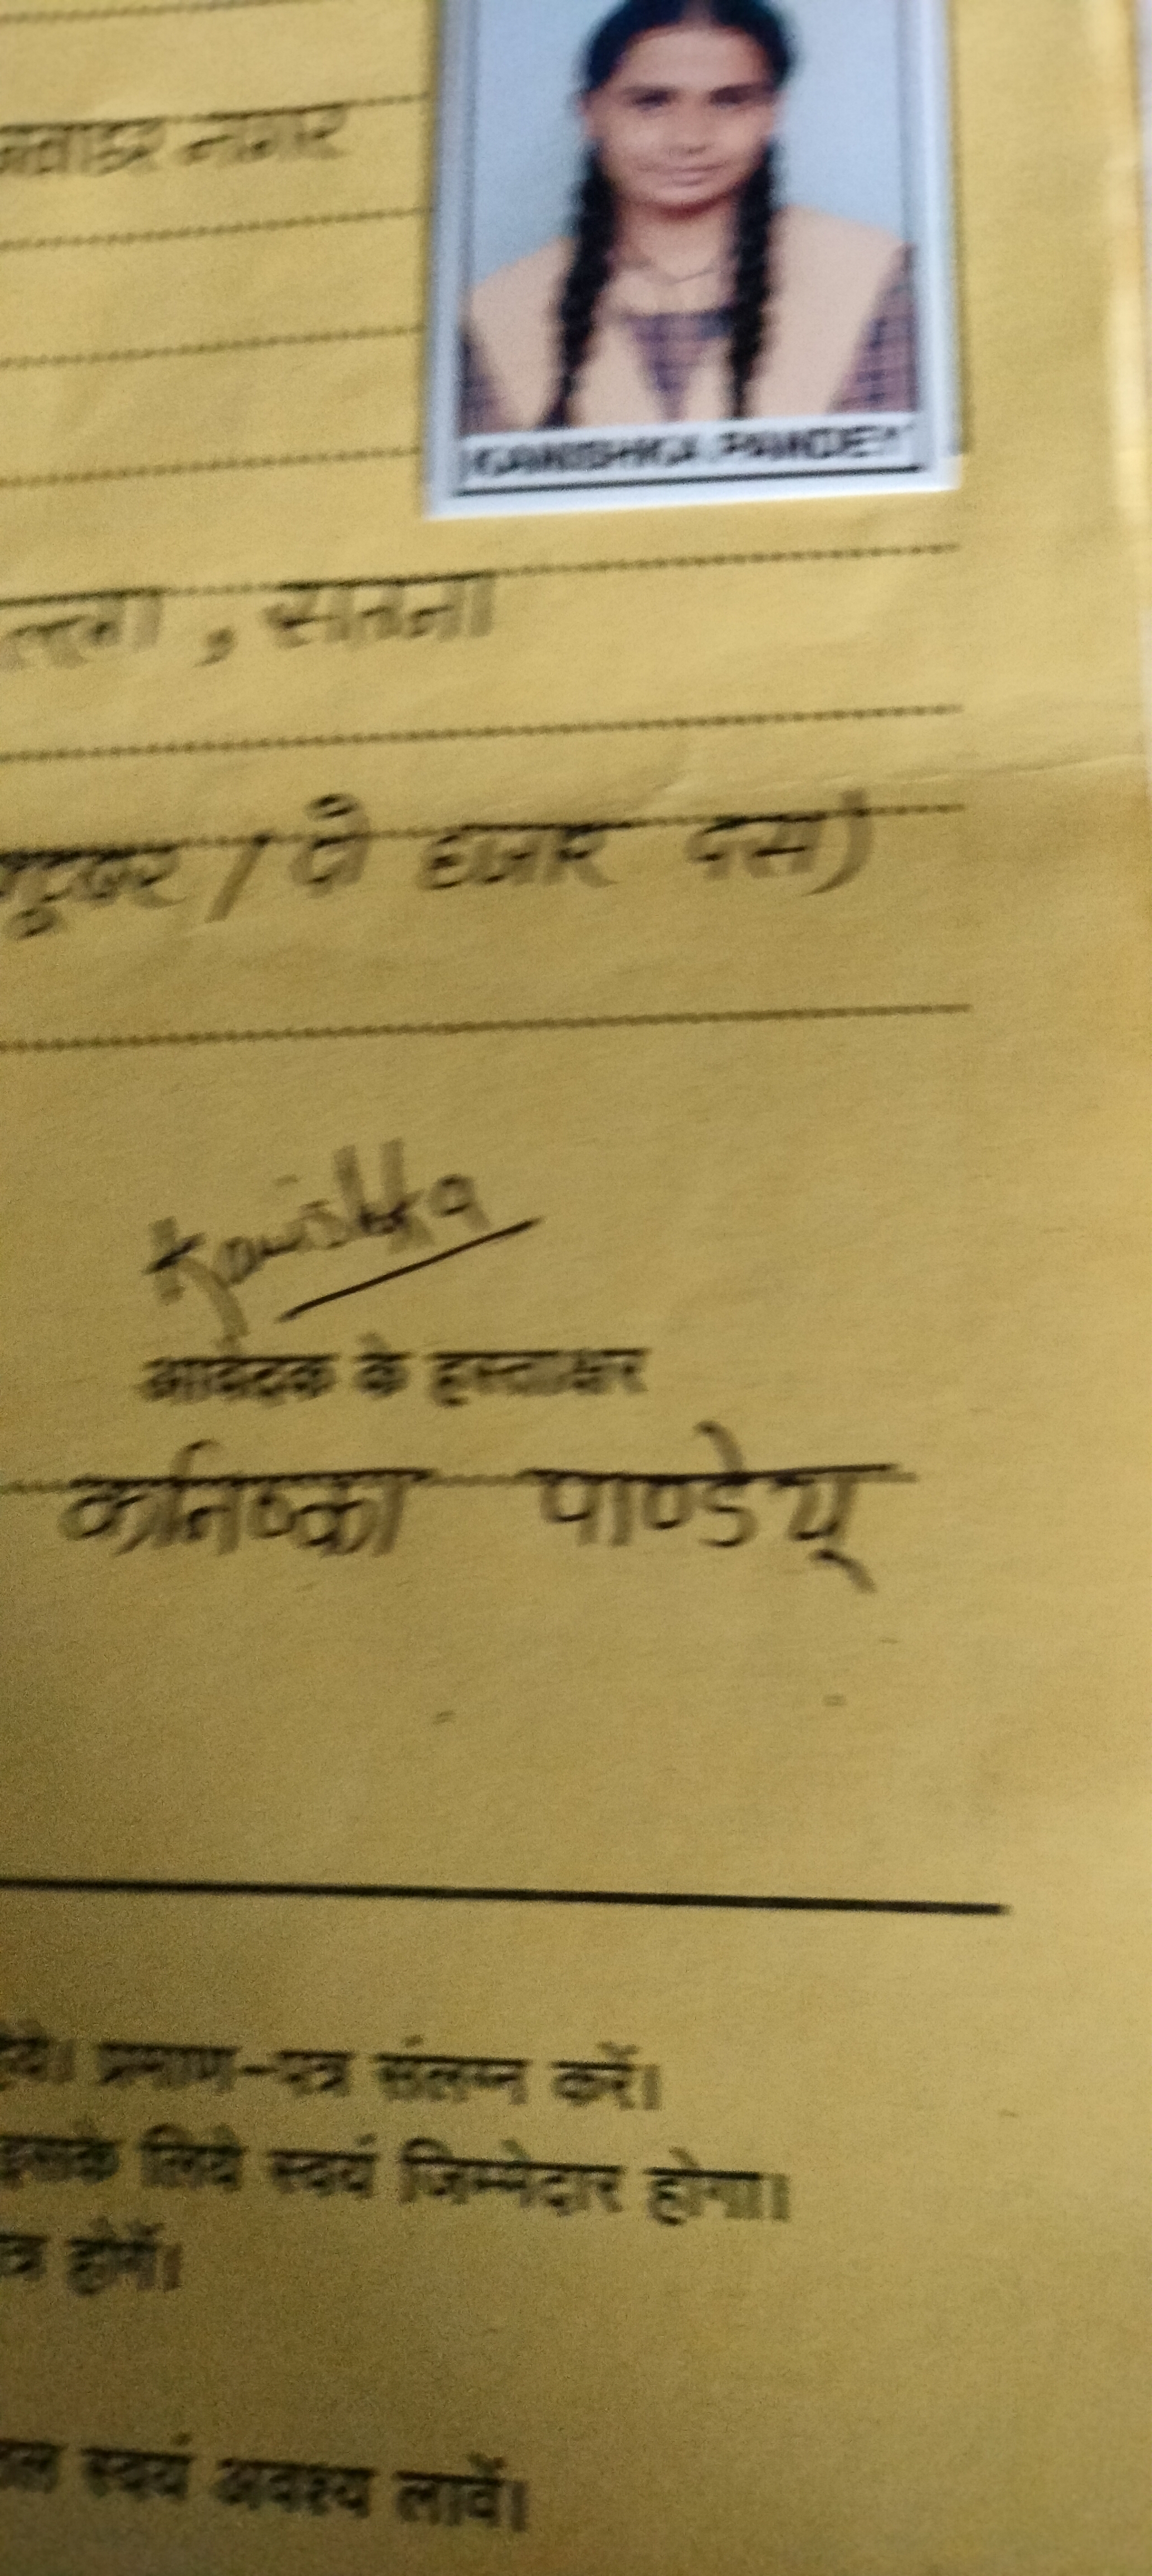 नगर
KANISHKA PANDEY
, सतना
/ दो हजार दस)
Kanishka
आवेदक के हस्ताक्षर
कनिष्का पाण्डेय्
प्रमाण-पत्र संलग्न करें।
इसके लिये स्वयं जिम्मेदार होगा।
होगें।
स्वयं अवश्य लावें।